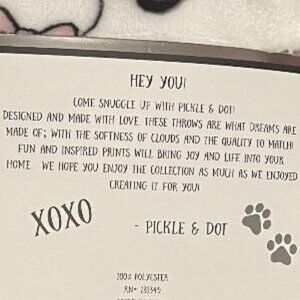 HEY YOU!
COME SNUGGLE UP WITH PICKLE & DOT!
DESIGNED AND MADE WITH LOVE. THESE THROWS ARE WHAT DREAMS ARE
MADE OF; WITH THE SOFTNESS OF CLOUDS AND THE QUALITY TO MATCH!
FUN AND INSPIRED PRINTS WILL BRING JOY AND LIFE INTO YOUR
HOME. WE HOPE YOU ENJOY THE COLLECTION AS MUCH AS WE ENJOYED
CREATING IT FOR YOU!
XOXO
- PICKLE & DOT
100% POLYESTER
RN# 131345